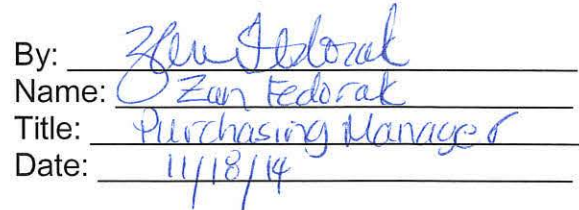 By: Zan Fedorak
Name: Zan Fedorak
Title: Purchasing Manager
Date: 11/18/14